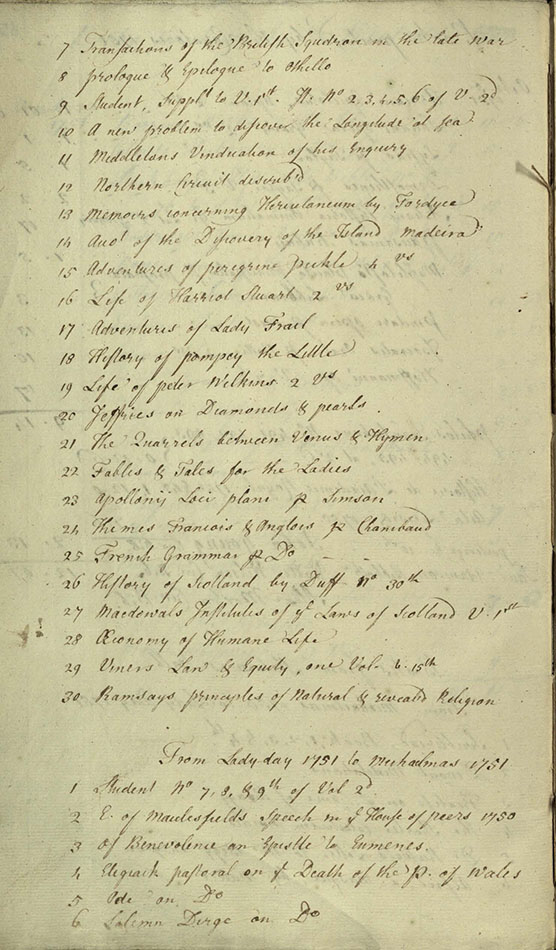 7 Transactions of the British Squadron in the late War
8 prologue & Epilogue to Othello
9 Student, Suppl.t to V. 1st. It: No 2.3.4.5.6 of V. 2d
10 A new problem to discover the Longitude at sea
11 Middletons Vindication of his Enquiry
12 Northern Circuit describ'd
13 Memoirs concerning Herculaneum by Fordyce
14 Acct of the Discovery of the Island Madeira
15 Adventures of peregrine pickle 4 vs
16 Life of Harriot Stuart 2 vs
17 Adventures of Lady Frail
18 History of pompey the Little
19 Life of peter Wilkins 2 vs
20 Jeffries on Diamonds & pearls
21 The Quarrels between Venus & Hymen
22 Fables & Tales for the Ladies
23 Apollonij Loci plani pr Simson
24 Themes Francois & Anglois pr Chambaud
25 French Grammar pr Do
26 History of Scotland by Duff No 30th
27 Macdowals Institutes of ye Laws of Scotland V. 1st
28 Œconomy of Humane Life
29 Viners Law & Equity, one Vol. v. 15th
30 Ramsays principles of Natural & reveald Religion
From Lady-day 1751 to Michaelmas 1751
1 Student No 7, 8, & 9th of Vol 2d
2 E. of Maclesfields Speech in ye House of peers 1750
3 Of Benevolence an Epistle to Eumenes.
4 Elegiack pastoral on ye Death of the P. of Wales
5 Ode on Do
6 Solemn Dirge on Do